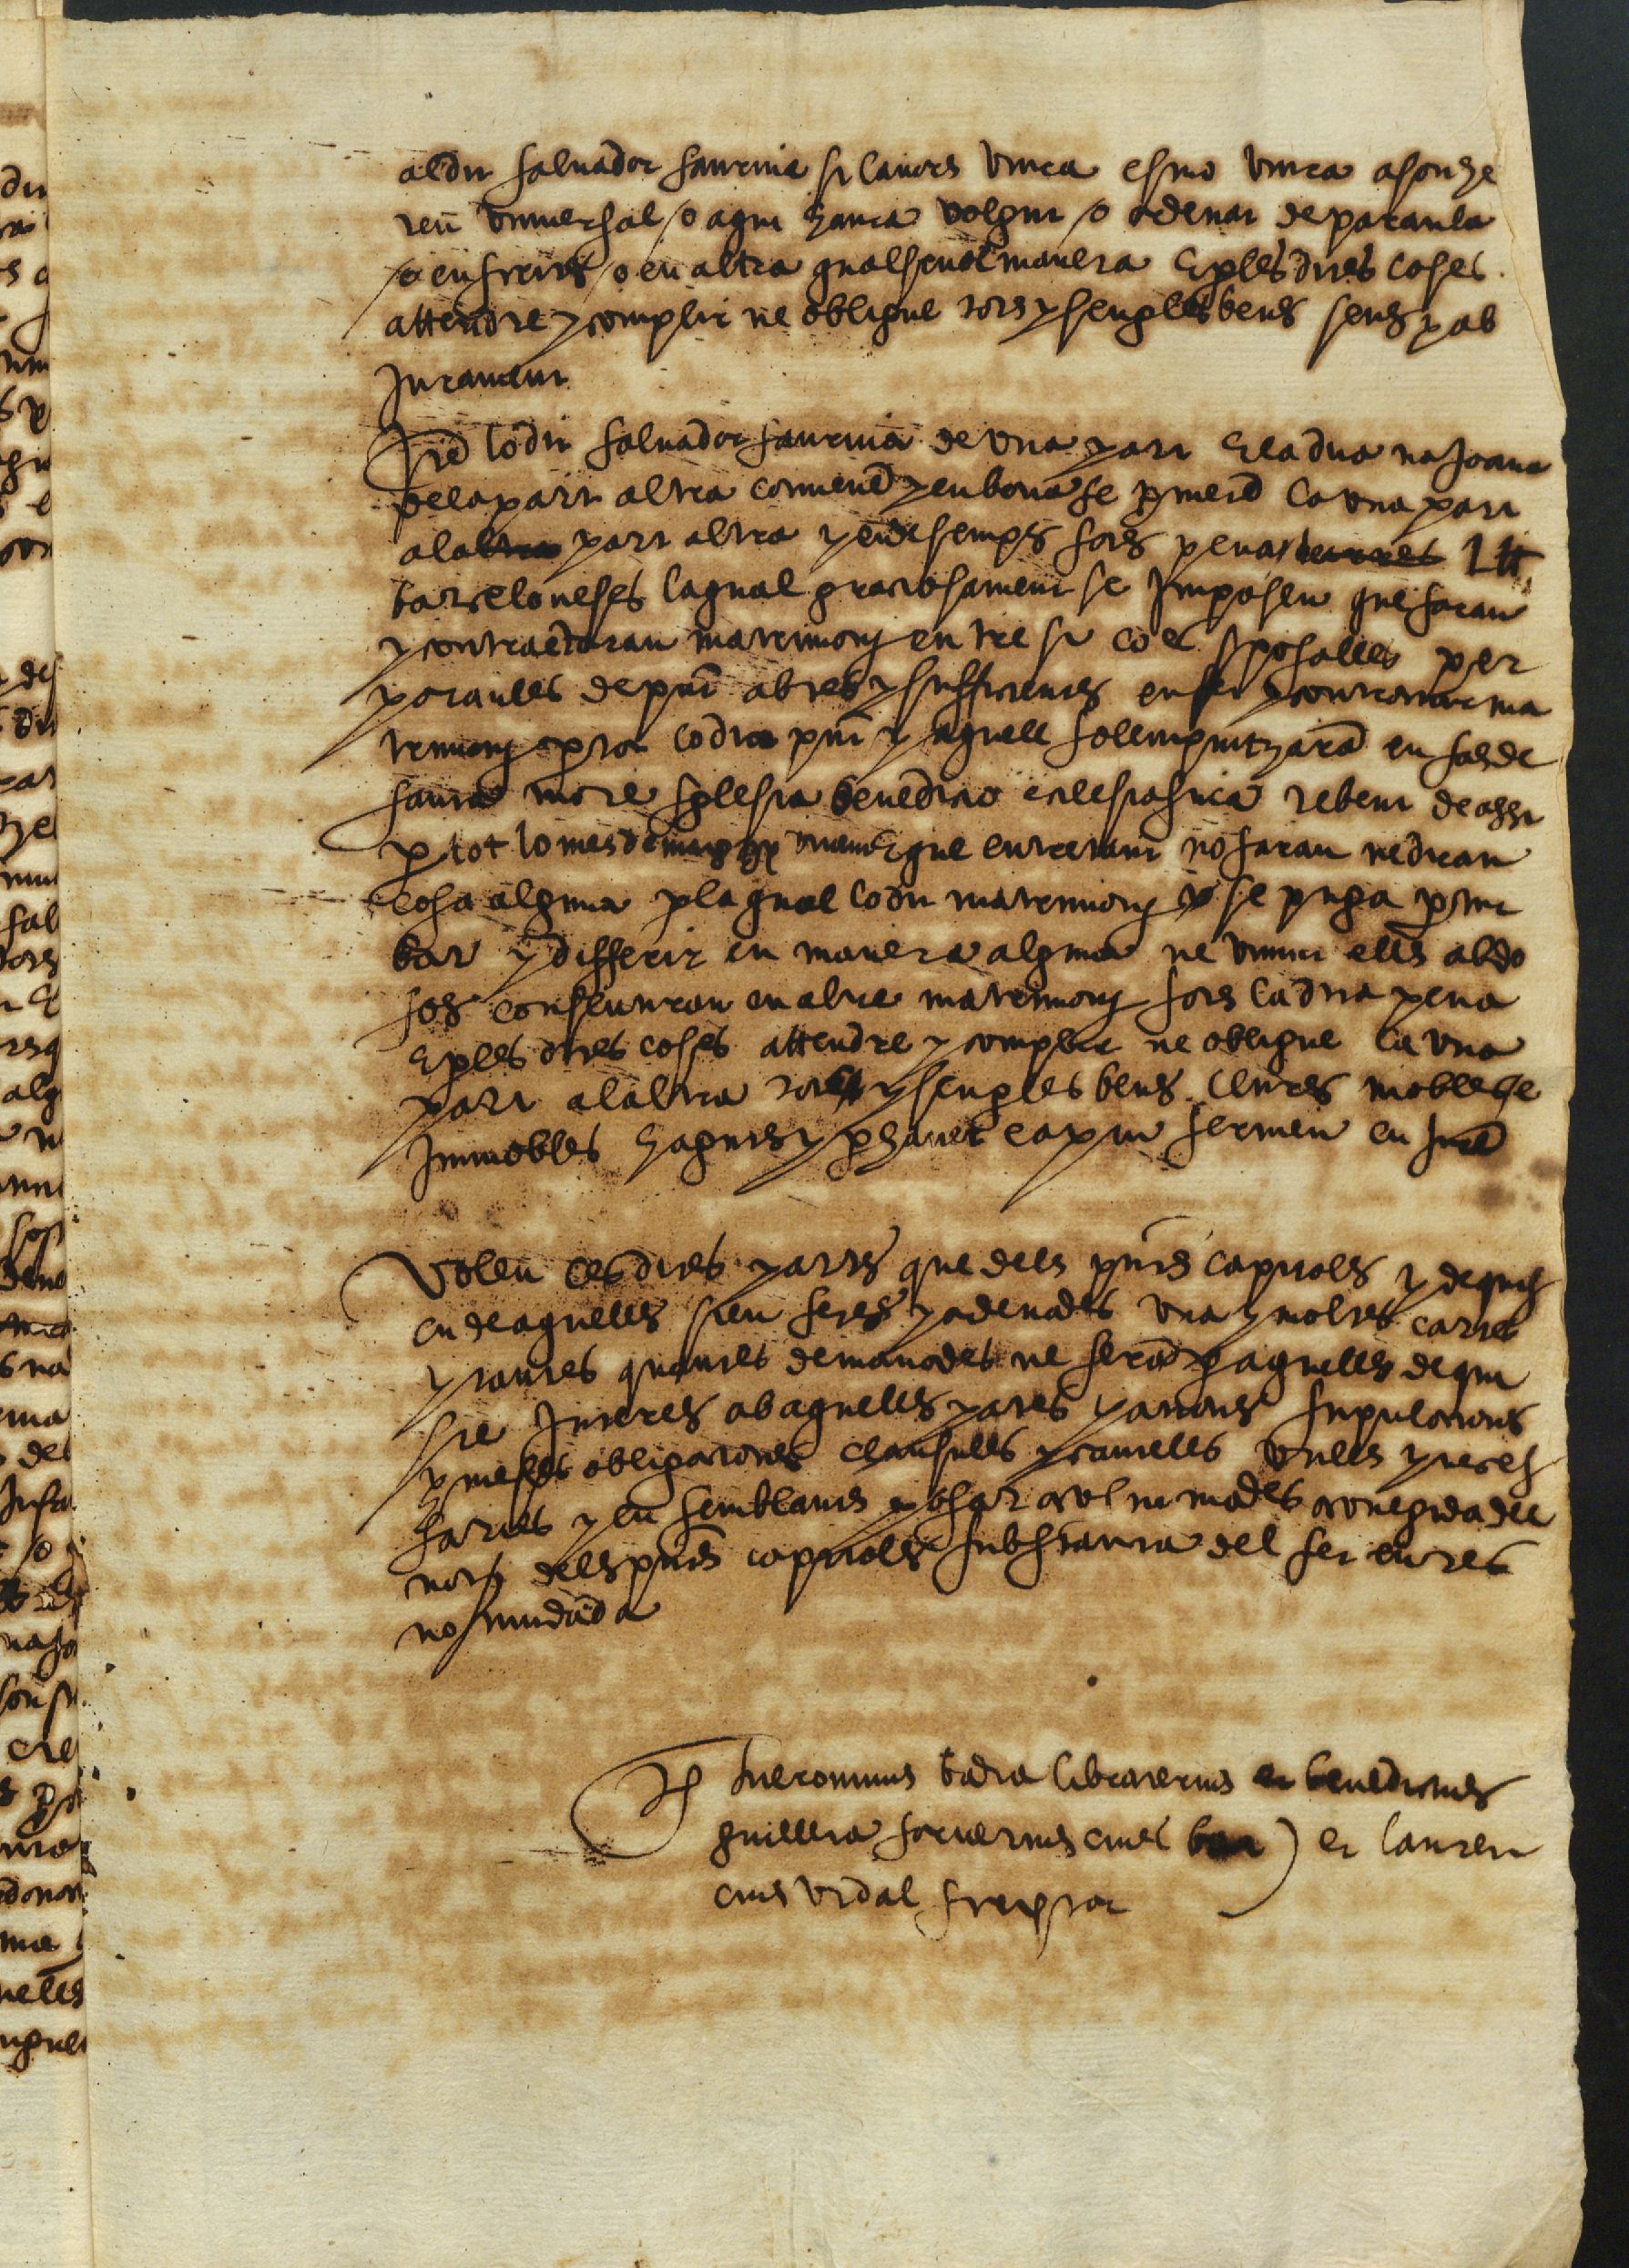 al dit saluador saurina si lauors viura e si no viura a son he
reu vniuersal / o a qui haura volgut / o ordenat de paraula
/ o en scrits / o en altra qualseuol manera E p les dites coses
attendre y complir ne obligue tots y sengles bens seus y ab
Jurament
Itē lo dit saluador saurina de vna part E la dita na Joana
de la part altra conuenē y en bona fe pmetē la vna part
a la part altra y endesemps sots pena L ll
barceloneses la qual graciosament se Imposen que faran
y contractaran matrimony entre si ço es sposalles per
paraules de pnt abtes y sufficients en fer y contractar ma
trimony p tot lo dia pnt y aquell solempnitzarā en fas de
santa mare Sglesia benedictio eclesiastica rebent de assi
p tot lo mes de vinent E que entretant no faran ne diran
cosa alguna p la qual lo dit matrimony se puga ptur
bar y differir en manera alguna ne viuint ells abdo
sos consentiran en altre matrimony sots la dita pena
E p les dites coses attendre y complir ne obligue la vna
part a la altra tots y sengles bens llurs mobles e
Immobles haguts y p hauer e axi u fermen en Jurā
Volen les dites parts que dels pnts capitols y de quis
cu de aquells sien fetes y ordenades vna y moltes cartes
y tantes quantes demanades ne serā p aquells de qui
sie Interes ab aquelles pactes pactions stipulations
pmeses obligations clausules y cautelles vtils y neces
saries y en semblants posar acustumades a coneguda del
not dels pnts capitols substantia del fet en res
no mudada
Ts hieronimus badia librarerius et benedictus
guillera ciues bar) et lauren
cius vidal scriptor